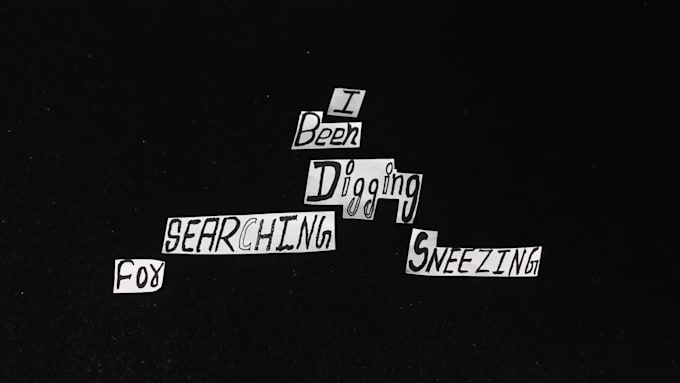 I
Been
Digging
SEARCHING
SNEEZING
For